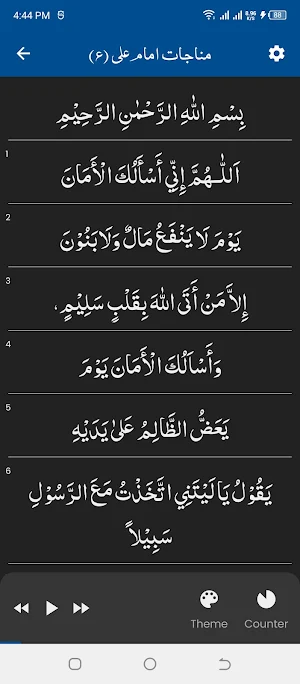 4:44 PM
8.96 K/s
88
مناجات امام علی (ع)
بِسْمِ اللهِ الرَّحْمٰنِ الرَّحِيْمِ
1
اَللّٰهُمَّ إِنِّي أَسْأَلُكَ الْأَمَانَ
2
يَوْمَ لَا يَنْفَعُ مَالٌ وَلَابَنُوْنَ
3
إِلاَّ مَنْ أَتَى اللهَ بِقَلْبٍ سَلِيْمٍ،
4
وَأَسْاَلُكَ الْأَمَانَ يَوْمَ
5
يَعَضُّ الظَّالِمُ عَلىٰ يَدَيْهِ
6
يَقُوْلُ يَا لَيْتَنِي اتَّخَذْتُ مَعَ الرَّسُوْلِ
سَبِيْلاً
Theme
Counter